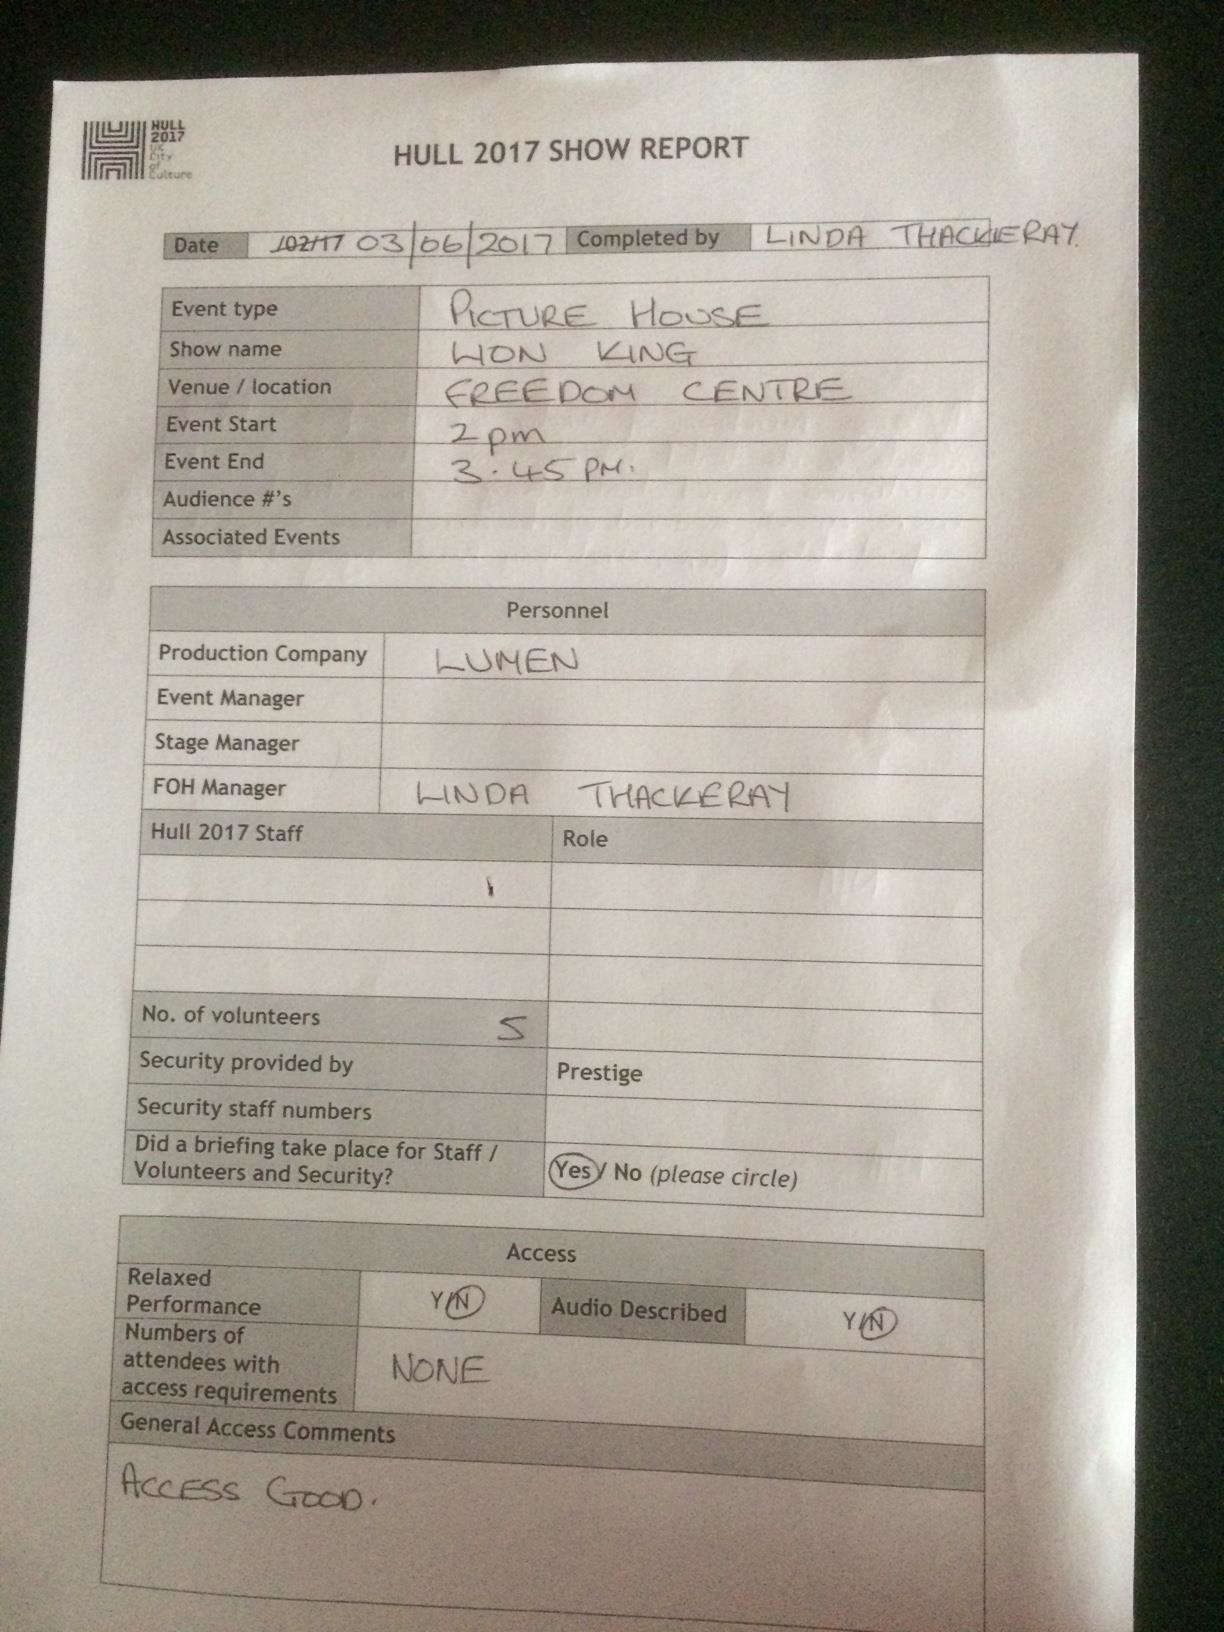 HULL
2017
UK
City
of
Culture
HULL 2017 SHOW REPORT
Date /02/17 03/06/2017 Completed by LINDA THACKERAY
Event type PICTURE HOUSE
Show name LION KING
Venue / location FREEDOM CENTRE
Event Start 2pm
Event End 3.45PM.
Audience #'s
Associated Events
Personnel
Production Company LUMEN
Event Manager
Stage Manager
FOH Manager LINDA THACKERAY
Hull 2017 Staff Role
No. of volunteers 5
Security provided by Prestige
Security staff numbers
Did a briefing take place for Staff /
Volunteers and Security? Yes / No (please circle)
Access
Relaxed
Performance Y/N Audio Described Y/N
Numbers of
attendees with
access requirements NONE
General Access Comments
ACCESS GOOD.